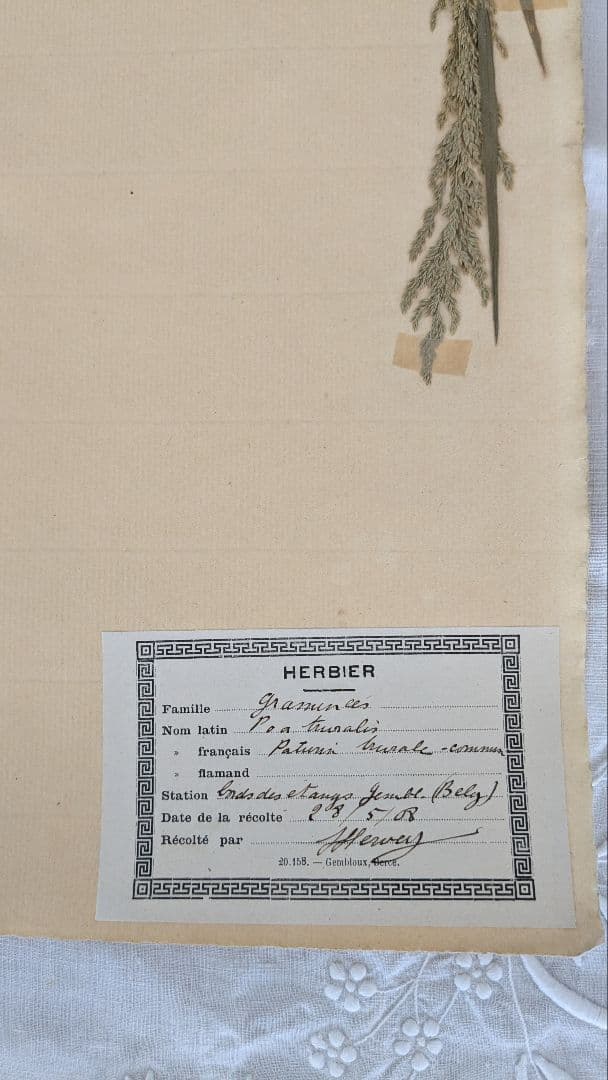 HERBIER
Famille graminées
Nom latin Poa
» français commun
» flamand
Station bords des etangs Gembl. (Belg)
Date de la récolte 28/5/08
Récolté par
20.158. — Gembloux,